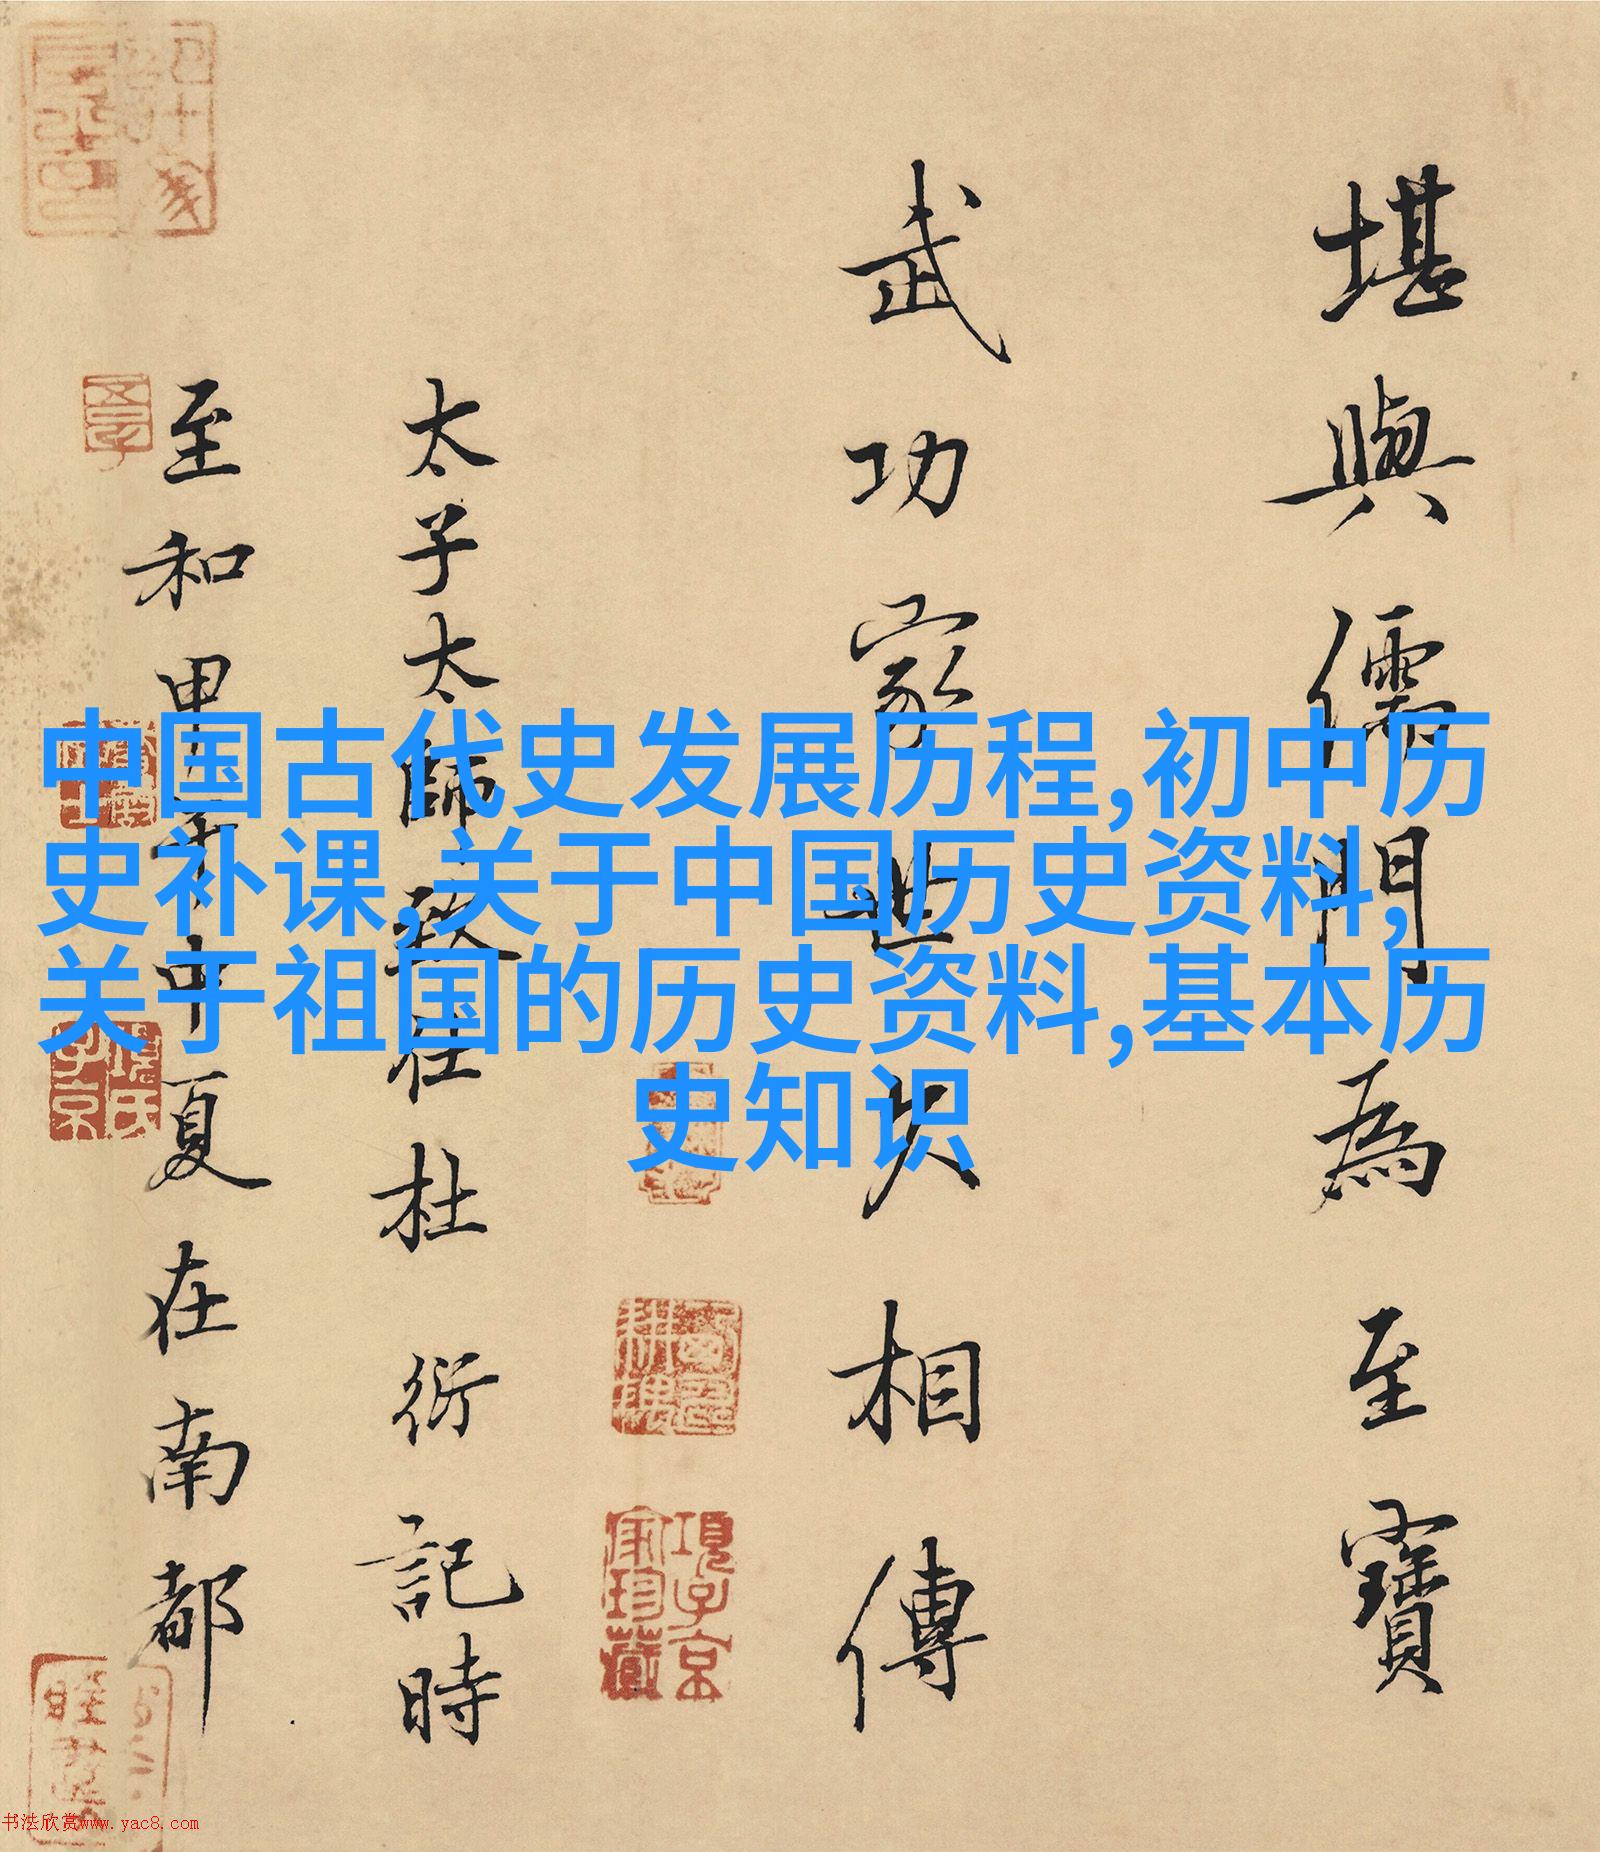 中国古代史发展历程,初中历
史补课,关于中国历史资料,
关于祖国的历史资料,基本历
史知识
堪與儒門為至寶
武功家世久相傳
太子太師致仕杜衍記時
至和甲午中夏在南都
項子京家珍藏
項氏子京
书法欣赏www.yac8.com